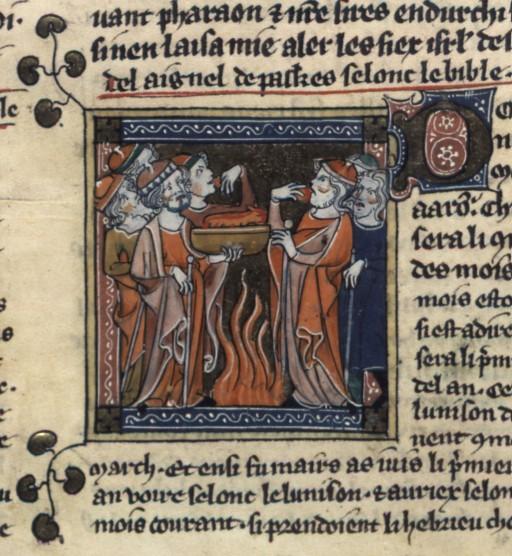 uant pharaon ⁊ nre sires endurchi
sinen laisa mie aler les fiex isrl' des
del aignel de paskes selonc le bible.
aaro. Ch
sera li q
des mois
mois esto
si est adire
sera li pm
del an. ce
lunison d
uent qm
march. Et ensi fu mairs as iuis li pmier
an voire selonc le lunison. ⁊ auriex selon
mois courant. si prendoient li hebrieu ch